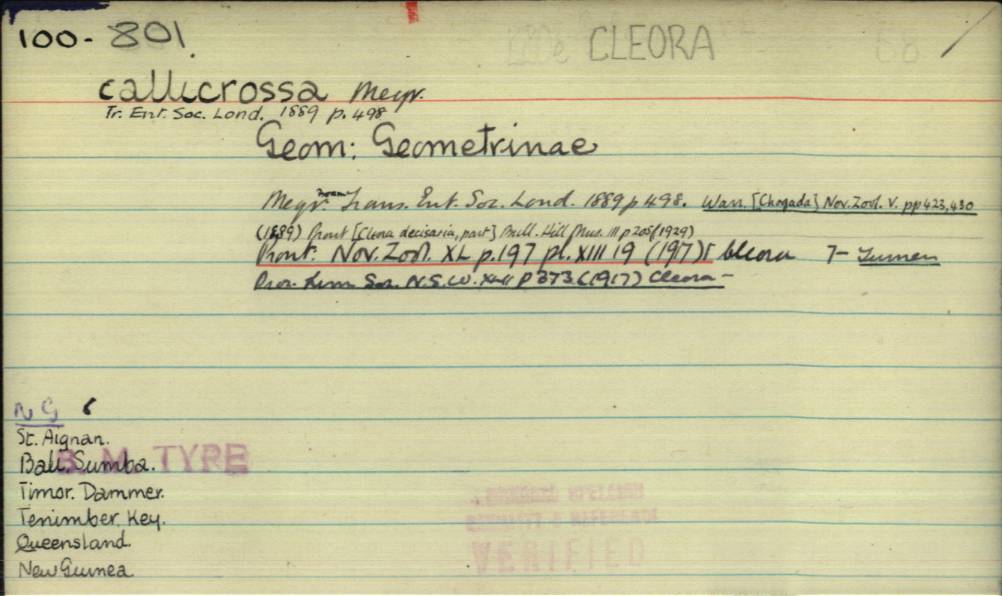 100-801 CLEORA 68
callicrossa Meyr.
Tr. Ent. Soc. Lond. 1889 p. 498
Geom: Geometrinae
Meyr. Trans. Ent. Soc. Lond. 1889 p 498. Warr. [Chogada] Nov. Zool. V. pp 423, 430
(1889) Prout [Cleora decisaria, part] Bull. Hill Mus. III p 205 (1929)
Prout. Nov. Zool. XL p. 197 pl. XIII 19 (197) Cleora 7-
Proc. Linn Soc. N.S.W. P 373 (1917) Cleora -
N G
St. Aignan.
Bali. Sumba.
B. M. TYPE
Timor. Dammer.
Tenimber. Key.
Queensland.
New Guinea
VERIFIED